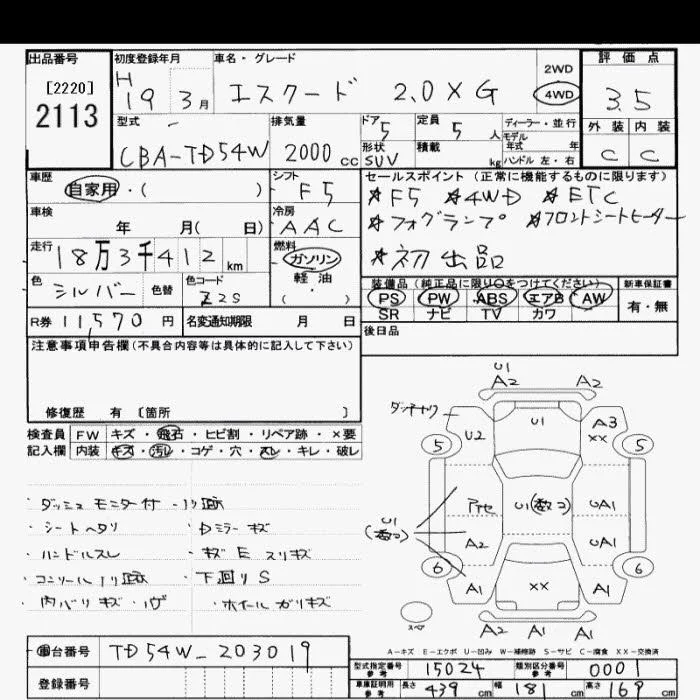 出品番号 初度登録年月 車名・グレード 2WD 評価点
[2220] H エスクード 2.0XG 4WD 3.5
2113 19 3月
型式 排気量 ドア 定員 ディーラー・並行 外装 内装
CBA-TD54W 2000cc 5 5人 モデル年式 年式 C C
形状 積載 kg ハンドル 左・右
SUV
車歴 シフト セールスポイント(正常に機能するものに限ります)
自家用・( ) F5 ★F5 ★4WD ★ETC
車検 冷房 ★フォグランプ ★フロントシートヒーター
年 月( 日) AAC ★初出品
走行 燃料
18万3千412km ガソリン
色 色替 色コード 軽油 装備品(純正品に限り○をつけてください) 新車保証書
シルバー Z2S ( ) PS PW ABS エアB AW 有・無
SR ナビ TV カワ
R券 11,570円 名変通知期限 月 日 後日品
注意事項申告欄(不具合内容等は具体的に記入して下さい)
修復歴 有 [箇所 ]
検査員 FW キズ・飛石・ヒビ割・リペア跡・×要
記入欄 内装 キズ・汚レ・コゲ・穴・スレ・キレ・破レ
・ダッシュ モニター付・ノリ跡
・シートヘタリ ・Dミラーキズ
・ハンドルスレ ・ギズE スリキズ
・コンソールノリ跡 ・下回りS
・内バリキズ・ ・ホイールガリキズ
U1
A2 A2
U1 A3
U2 XX
5 5
アセ U1(数コ) UA1
U1
(数コ) A2 UA1
6 6
A1 XX A1
スペア A2 A1 A1
A=キズ E=エクボ U=凹み W=補修跡 S=サビ C=腐食 XX=交換済
車台番号 TD54W-203019
登録番号
型式指定番号 参考 15024 類別区分番号 参考 0001
車庫証明用 参考 長さ 439cm 幅 181cm 高さ 169cm